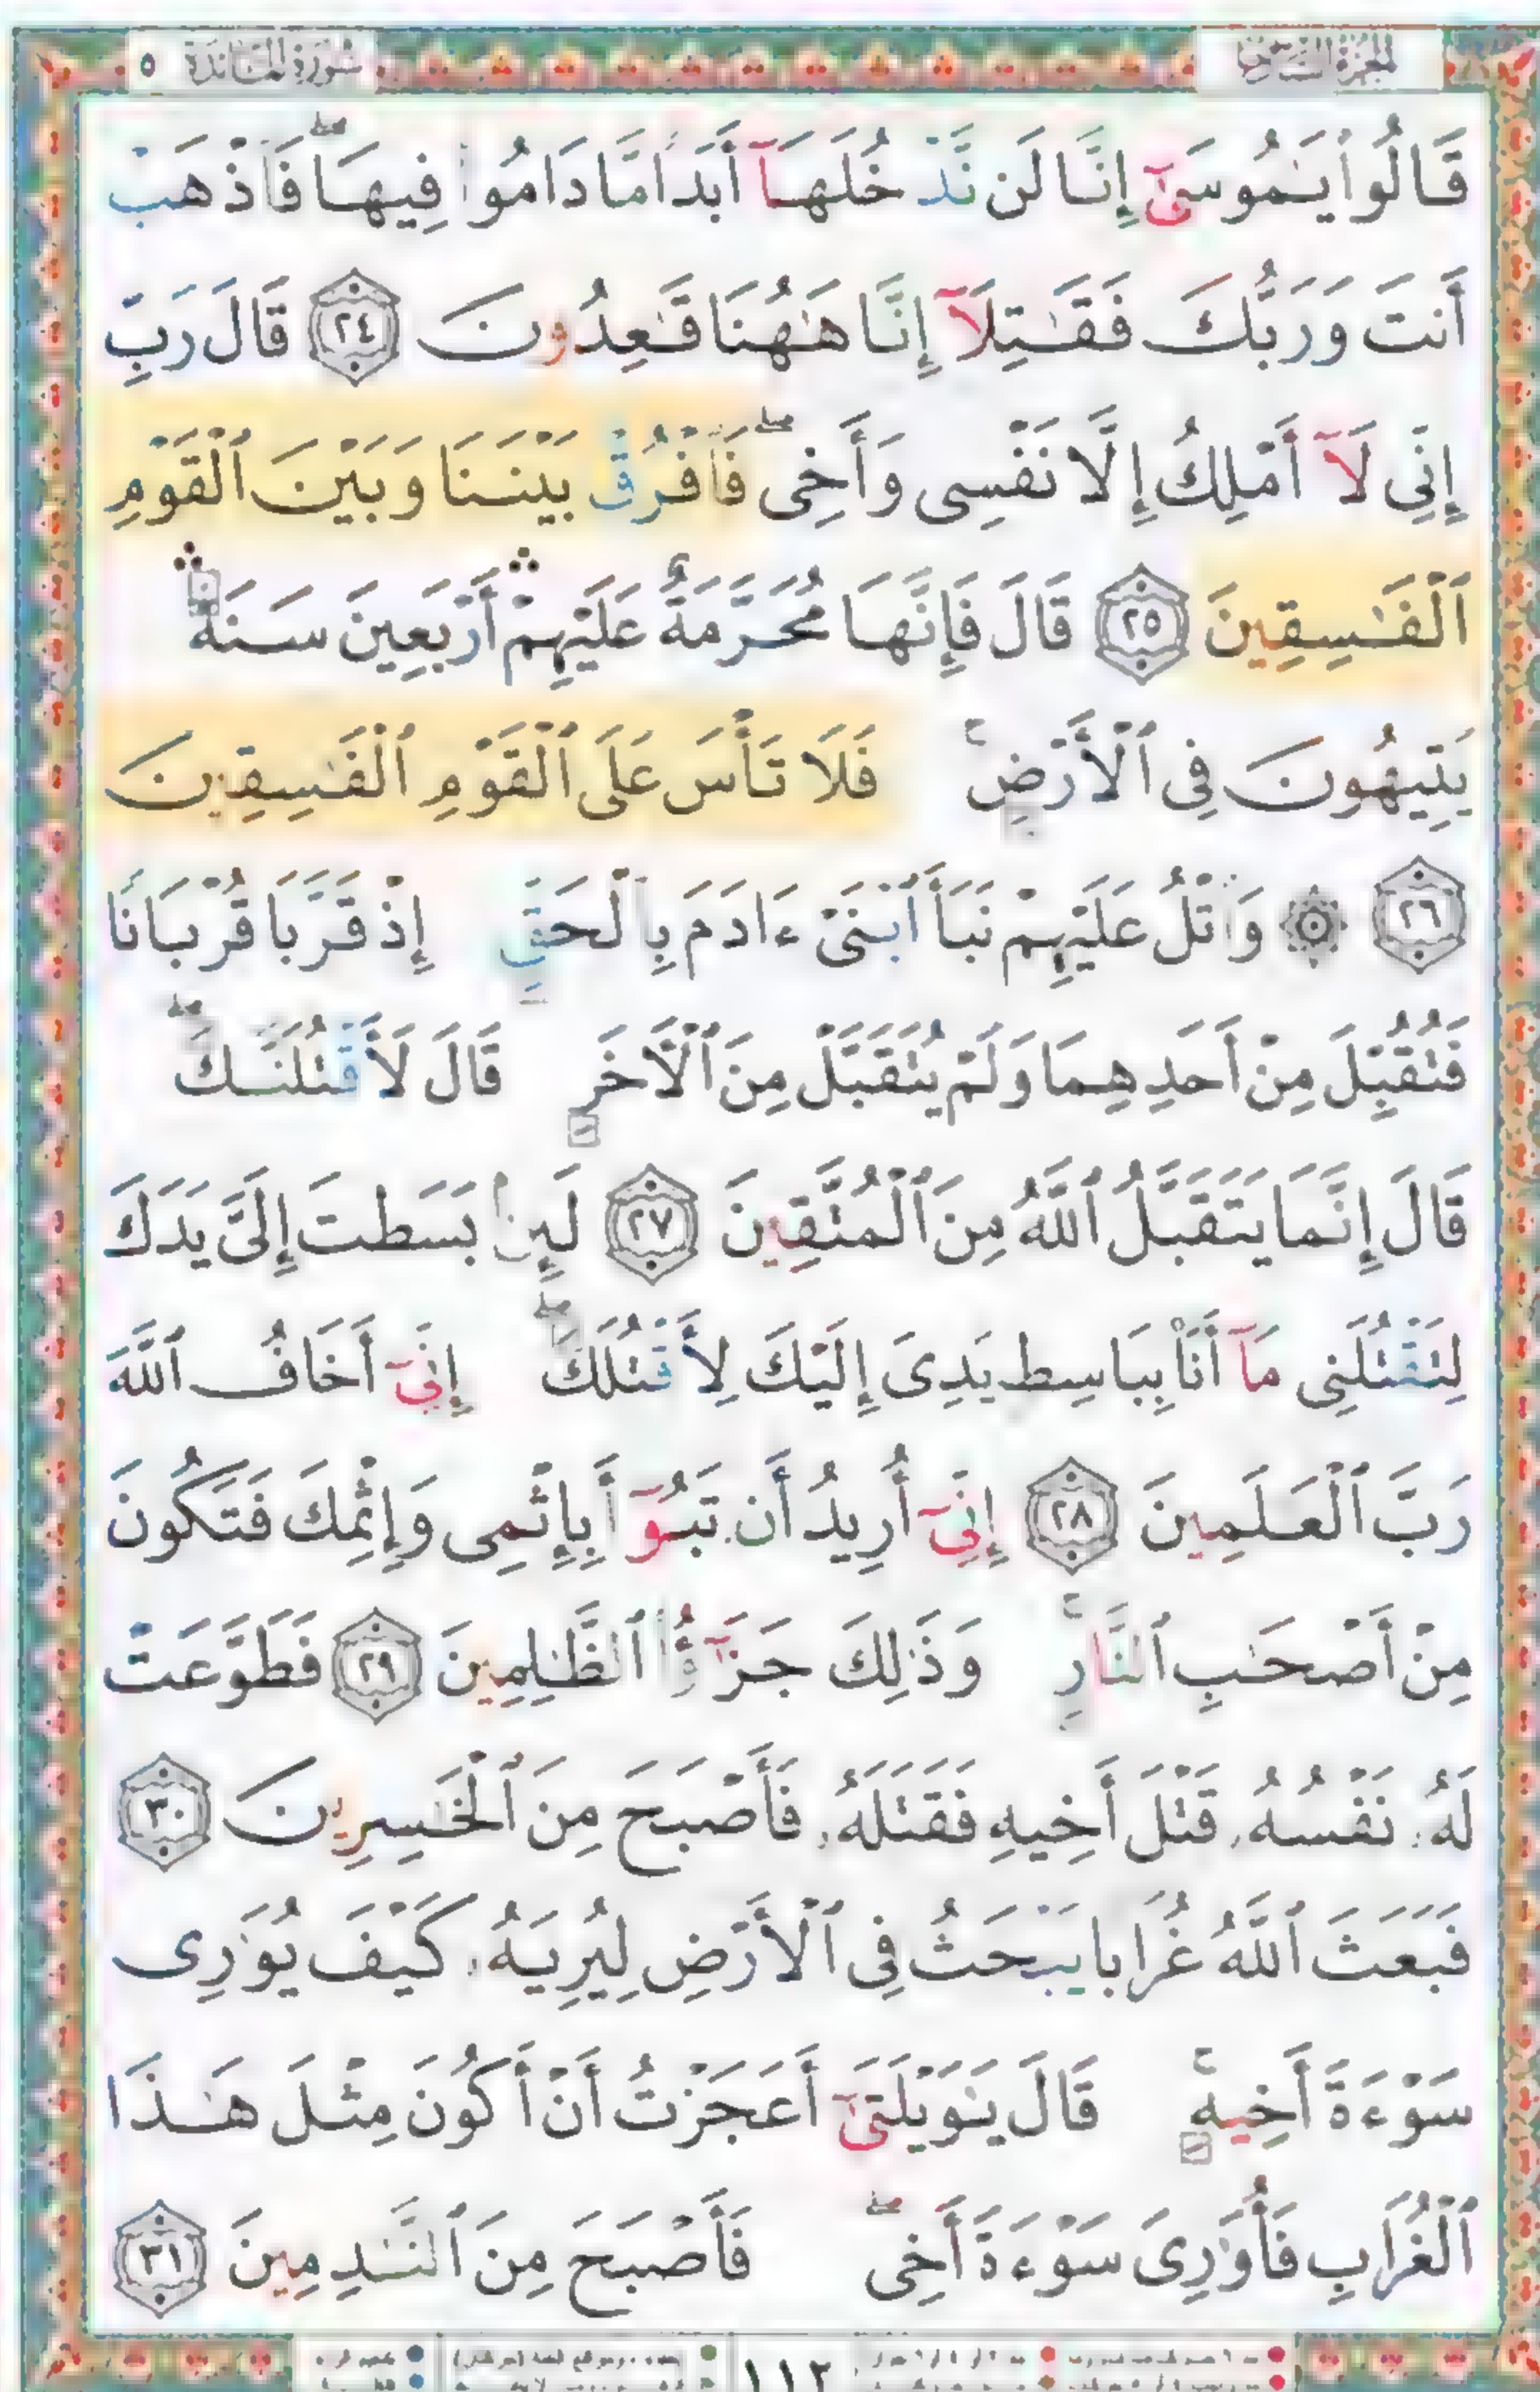 الجزء السادس سورة المائدة ٥
قَالُوا۟ يَـٰمُوسَىٰٓ إِنَّا لَن نَّدْخُلَهَآ أَبَدًا مَّا دَامُوا۟ فِيهَا ۖ فَٱذْهَبْ
أَنتَ وَرَبُّكَ فَقَـٰتِلَآ إِنَّا هَـٰهُنَا قَـٰعِدُونَ ٢٤ قَالَ رَبِّ
إِنِّى لَآ أَمْلِكُ إِلَّا نَفْسِى وَأَخِى ۖ فَٱفْرُقْ بَيْنَنَا وَبَيْنَ ٱلْقَوْمِ
ٱلْفَـٰسِقِينَ ٢٥ قَالَ فَإِنَّهَا مُحَرَّمَةٌ عَلَيْهِمْ ۛ أَرْبَعِينَ سَنَةً ۛ
يَتِيهُونَ فِى ٱلْأَرْضِ ۚ فَلَا تَأْسَ عَلَى ٱلْقَوْمِ ٱلْفَـٰسِقِينَ
٢٦ ۞ وَٱتْلُ عَلَيْهِمْ نَبَأَ ٱبْنَىْ ءَادَمَ بِٱلْحَقِّ إِذْ قَرَّبَا قُرْبَانًا
فَتُقُبِّلَ مِنْ أَحَدِهِمَا وَلَمْ يُتَقَبَّلْ مِنَ ٱلْـَٔاخَرِ قَالَ لَأَقْتُلَنَّكَ ۖ
قَالَ إِنَّمَا يَتَقَبَّلُ ٱللَّهُ مِنَ ٱلْمُتَّقِينَ ٢٧ لَئِنۢ بَسَطتَ إِلَىَّ يَدَكَ
لِتَقْتُلَنِى مَآ أَنَا۠ بِبَاسِطٍ يَدِىَ إِلَيْكَ لِأَقْتُلَكَ ۖ إِنِّىٓ أَخَافُ ٱللَّهَ
رَبَّ ٱلْعَـٰلَمِينَ ٢٨ إِنِّىٓ أُرِيدُ أَن تَبُوٓأَ بِإِثْمِى وَإِثْمِكَ فَتَكُونَ
مِنْ أَصْحَـٰبِ ٱلنَّارِ ۚ وَذَٰلِكَ جَزَٰٓؤُا۟ ٱلظَّـٰلِمِينَ ٢٩ فَطَوَّعَتْ
لَهُۥ نَفْسُهُۥ قَتْلَ أَخِيهِ فَقَتَلَهُۥ فَأَصْبَحَ مِنَ ٱلْخَـٰسِرِينَ ٣٠
فَبَعَثَ ٱللَّهُ غُرَابًا يَبْحَثُ فِى ٱلْأَرْضِ لِيُرِيَهُۥ كَيْفَ يُوَٰرِى
سَوْءَةَ أَخِيهِ ۚ قَالَ يَـٰوَيْلَتَىٰٓ أَعَجَزْتُ أَنْ أَكُونَ مِثْلَ هَـٰذَا
ٱلْغُرَابِ فَأُوَٰرِىَ سَوْءَةَ أَخِى ۖ فَأَصْبَحَ مِنَ ٱلنَّـٰدِمِينَ ٣١
١١٢